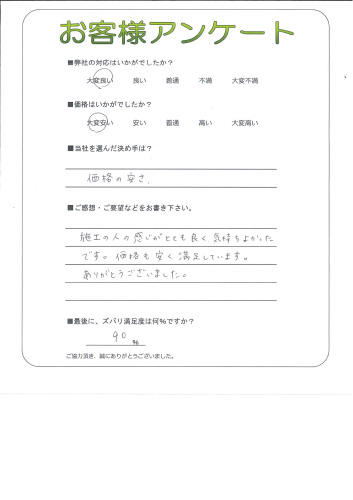 お客様アンケート
■弊社の対応はいかがでしたか?
大変良い 良い 普通 不満 大変不満
■価格はいかがでしたか?
大変安い 安い 普通 高い 大変高い
■当社を選んだ決め手は?
価格の安さ.
■ご感想・ご要望などをお書き下さい。
施工の人の感じがとても良く気持ちよかった
です。価格も安く満足しています。
ありがとうございました。
■最後に、ズバリ満足度は何%ですか?
90 %
ご協力頂き、誠にありがとうございました。